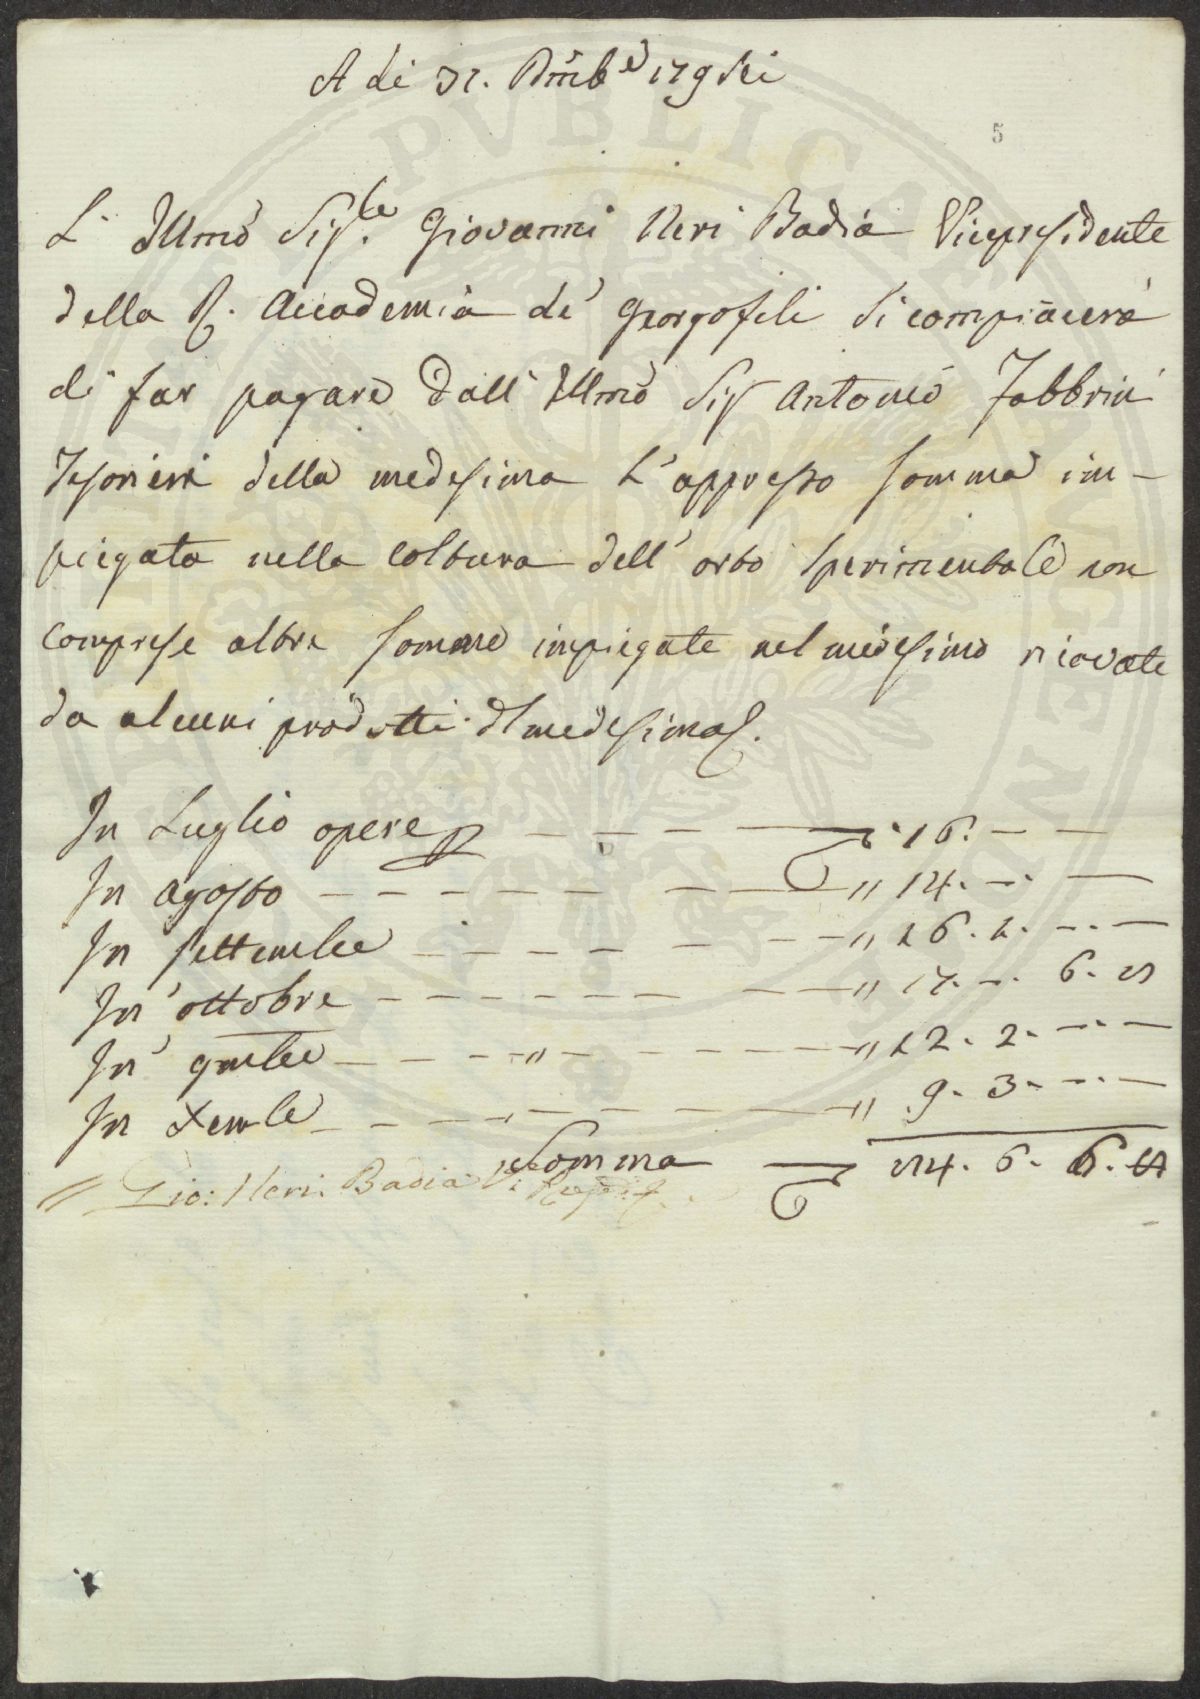 A di 31. Dmbe 179sei
5
L' Illmo Sigre Giovanni Neri Badia Vicepresidente
della R. Accademia de' Georgofili si compiacerà
di far pagare dall' Illmo Sig Antonio Fabbrini
Tesoriere della medesima L'appresso somma im-
piegata nella coltura dell' orto sperimentale non
comprese altre somme impiegate nel medesimo ricavate
da alcuni prodotti dl medesimo.
In Luglio opere — 16. —
In agosto — " 14. —
In settembre — " 16. 2. —
In ottobre — " 6.
In 9mbre — " 12. 2. —
In Xembre — " 9. 3. —
Somma — 4. 6. 6.
Gio: Neri Badia
PUBLICAE